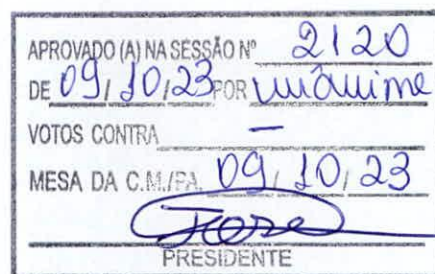 APROVADO (A) NA SESSÃO Nº 2120
DE 09/10/23 POR unânime
VOTOS CONTRA —
MESA DA C.M./PA. 09/10/23
PRESIDENTE